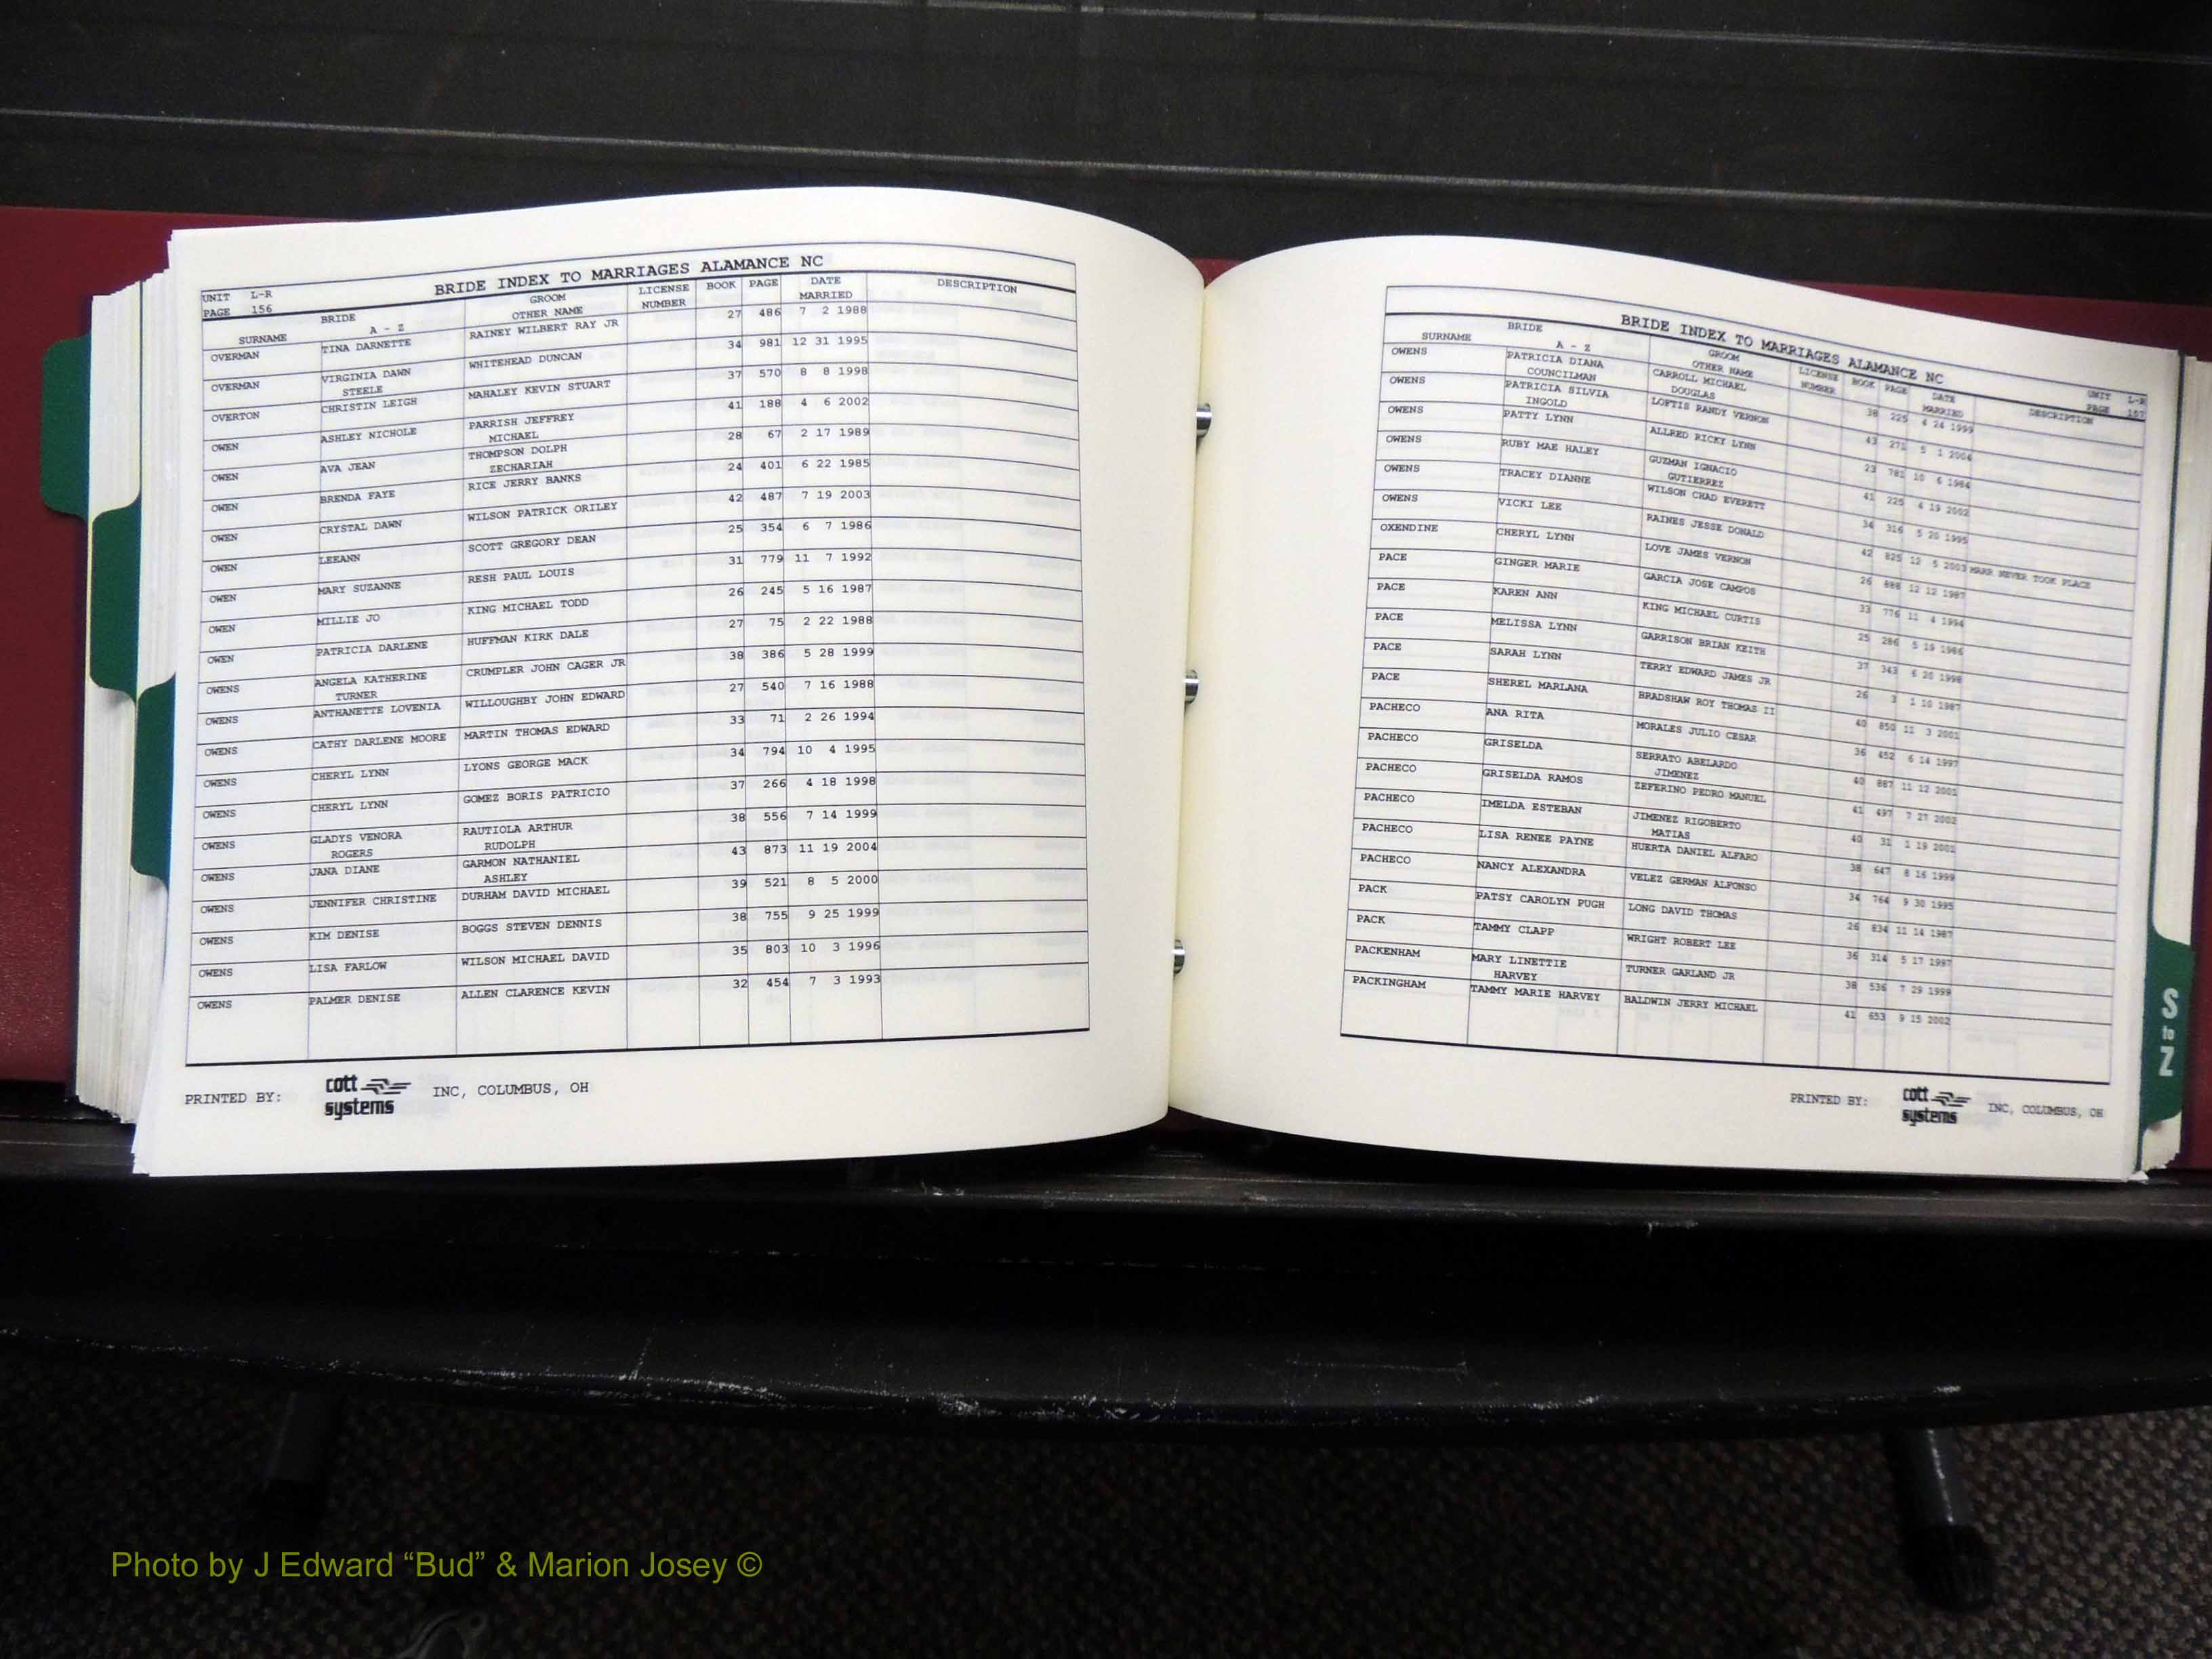 BRIDE INDEX TO MARRIAGES ALAMANCE NC
UNIT L-R
PAGE 156
BRIDE GROOM LICENSE BOOK PAGE DATE DESCRIPTION
SURNAME A - Z OTHER NAME NUMBER MARRIED
OVERMAN TINA DARNETTE RAINEY WILBERT RAY JR 27 486 7 2 1988
OVERMAN VIRGINIA DAWN WHITEHEAD DUNCAN 34 981 12 31 1995
STEELE
OVERTON CHRISTIN LEIGH MAHALEY KEVIN STUART 37 570 8 8 1998
OWEN ASHLEY NICHOLE PARRISH JEFFREY 41 188 4 6 2002
MICHAEL
OWEN AVA JEAN THOMPSON DOLPH 28 67 2 17 1989
ZECHARIAH
OWEN BRENDA FAYE RICE JERRY BANKS 24 401 6 22 1985
OWEN CRYSTAL DAWN WILSON PATRICK ORILEY 42 487 7 19 2003
OWEN LEEANN SCOTT GREGORY DEAN 25 354 6 7 1986
OWEN MARY SUZANNE RESH PAUL LOUIS 31 779 11 7 1992
OWEN MILLIE JO KING MICHAEL TODD 26 245 5 16 1987
OWEN PATRICIA DARLENE HUFFMAN KIRK DALE 27 75 2 22 1988
OWENS ANGELA KATHERINE CRUMPLER JOHN CAGER JR 38 386 5 28 1999
TURNER
OWENS ANTHANETTE LOVENIA WILLOUGHBY JOHN EDWARD 27 540 7 16 1988
OWENS CATHY DARLENE MOORE MARTIN THOMAS EDWARD 33 71 2 26 1994
OWENS CHERYL LYNN LYONS GEORGE MACK 34 794 10 4 1995
OWENS CHERYL LYNN GOMEZ BORIS PATRICIO 37 266 4 18 1998
OWENS GLADYS VENORA RAUTIOLA ARTHUR 38 556 7 14 1999
ROGERS RUDOLPH
OWENS JANA DIANE GARMON NATHANIEL 43 873 11 19 2004
ASHLEY
OWENS JENNIFER CHRISTINE DURHAM DAVID MICHAEL 39 521 8 5 2000
OWENS KIM DENISE BOGGS STEVEN DENNIS 38 755 9 25 1999
OWENS LISA FARLOW WILSON MICHAEL DAVID 35 803 10 3 1996
OWENS PALMER DENISE ALLEN CLARENCE KEVIN 32 454 7 3 1993
PRINTED BY: cott systems INC, COLUMBUS, OH
BRIDE INDEX TO MARRIAGES ALAMANCE NC
UNIT L-R
PAGE 157
BRIDE GROOM LICENSE BOOK PAGE DATE DESCRIPTION
SURNAME A - Z OTHER NAME NUMBER MARRIED
OWENS PATRICIA DIANA CARROLL MICHAEL 38 225 4 24 1999
COUNCILMAN DOUGLAS
OWENS PATRICIA SILVIA LOFTIS RANDY VERNON 43 271 5 1 2004
INGOLD
OWENS PATTY LYNN ALLRED RICKY LYNN 23 781 10 6 1984
OWENS RUBY MAE HALEY GUZMAN IGNACIO 41 225 4 19 2002
GUTIERREZ
OWENS TRACEY DIANNE WILSON CHAD EVERETT 34 316 5 20 1995
OWENS VICKI LEE RAINES JESSE DONALD 42 825 12 5 2003 MARR NEVER TOOK PLACE
OXENDINE CHERYL LYNN LOVE JAMES VERNON 26 888 12 12 1987
PACE GINGER MARIE GARCIA JOSE CAMPOS 33 776 11 4 1994
PACE KAREN ANN KING MICHAEL CURTIS 25 286 5 19 1986
PACE MELISSA LYNN GARRISON BRIAN KEITH 37 343 6 20 1998
PACE SARAH LYNN TERRY EDWARD JAMES JR 26 3 1 10 1987
PACE SHEREL MARLANA BRADSHAW ROY THOMAS II 40 850 11 3 2001
PACHECO ANA RITA MORALES JULIO CESAR 36 452 6 14 1997
PACHECO GRISELDA SERRATO ABELARDO 40 887 11 12 2001
JIMENEZ
PACHECO GRISELDA RAMOS ZEFERINO PEDRO MANUEL 41 497 7 27 2002
PACHECO IMELDA ESTEBAN JIMENEZ RIGOBERTO 40 31 1 19 2001
MATIAS
PACHECO LISA RENEE PAYNE HUERTA DANIEL ALFARO 38 647 8 16 1999
PACHECO NANCY ALEXANDRA VELEZ GERMAN ALFONSO 34 764 9 30 1995
PACK PATSY CAROLYN PUGH LONG DAVID THOMAS 26 834 11 14 1987
PACK TAMMY CLAPP WRIGHT ROBERT LEE 36 314 5 17 1997
PACKENHAM MARY LINETTIE TURNER GARLAND JR 38 536 7 29 1999
HARVEY
PACKINGHAM TAMMY MARIE HARVEY BALDWIN JERRY MICHAEL 41 653 9 15 2002
PRINTED BY: cott systems INC, COLUMBUS, OH
S to Z
Photo by J Edward “Bud” & Marion Josey ©